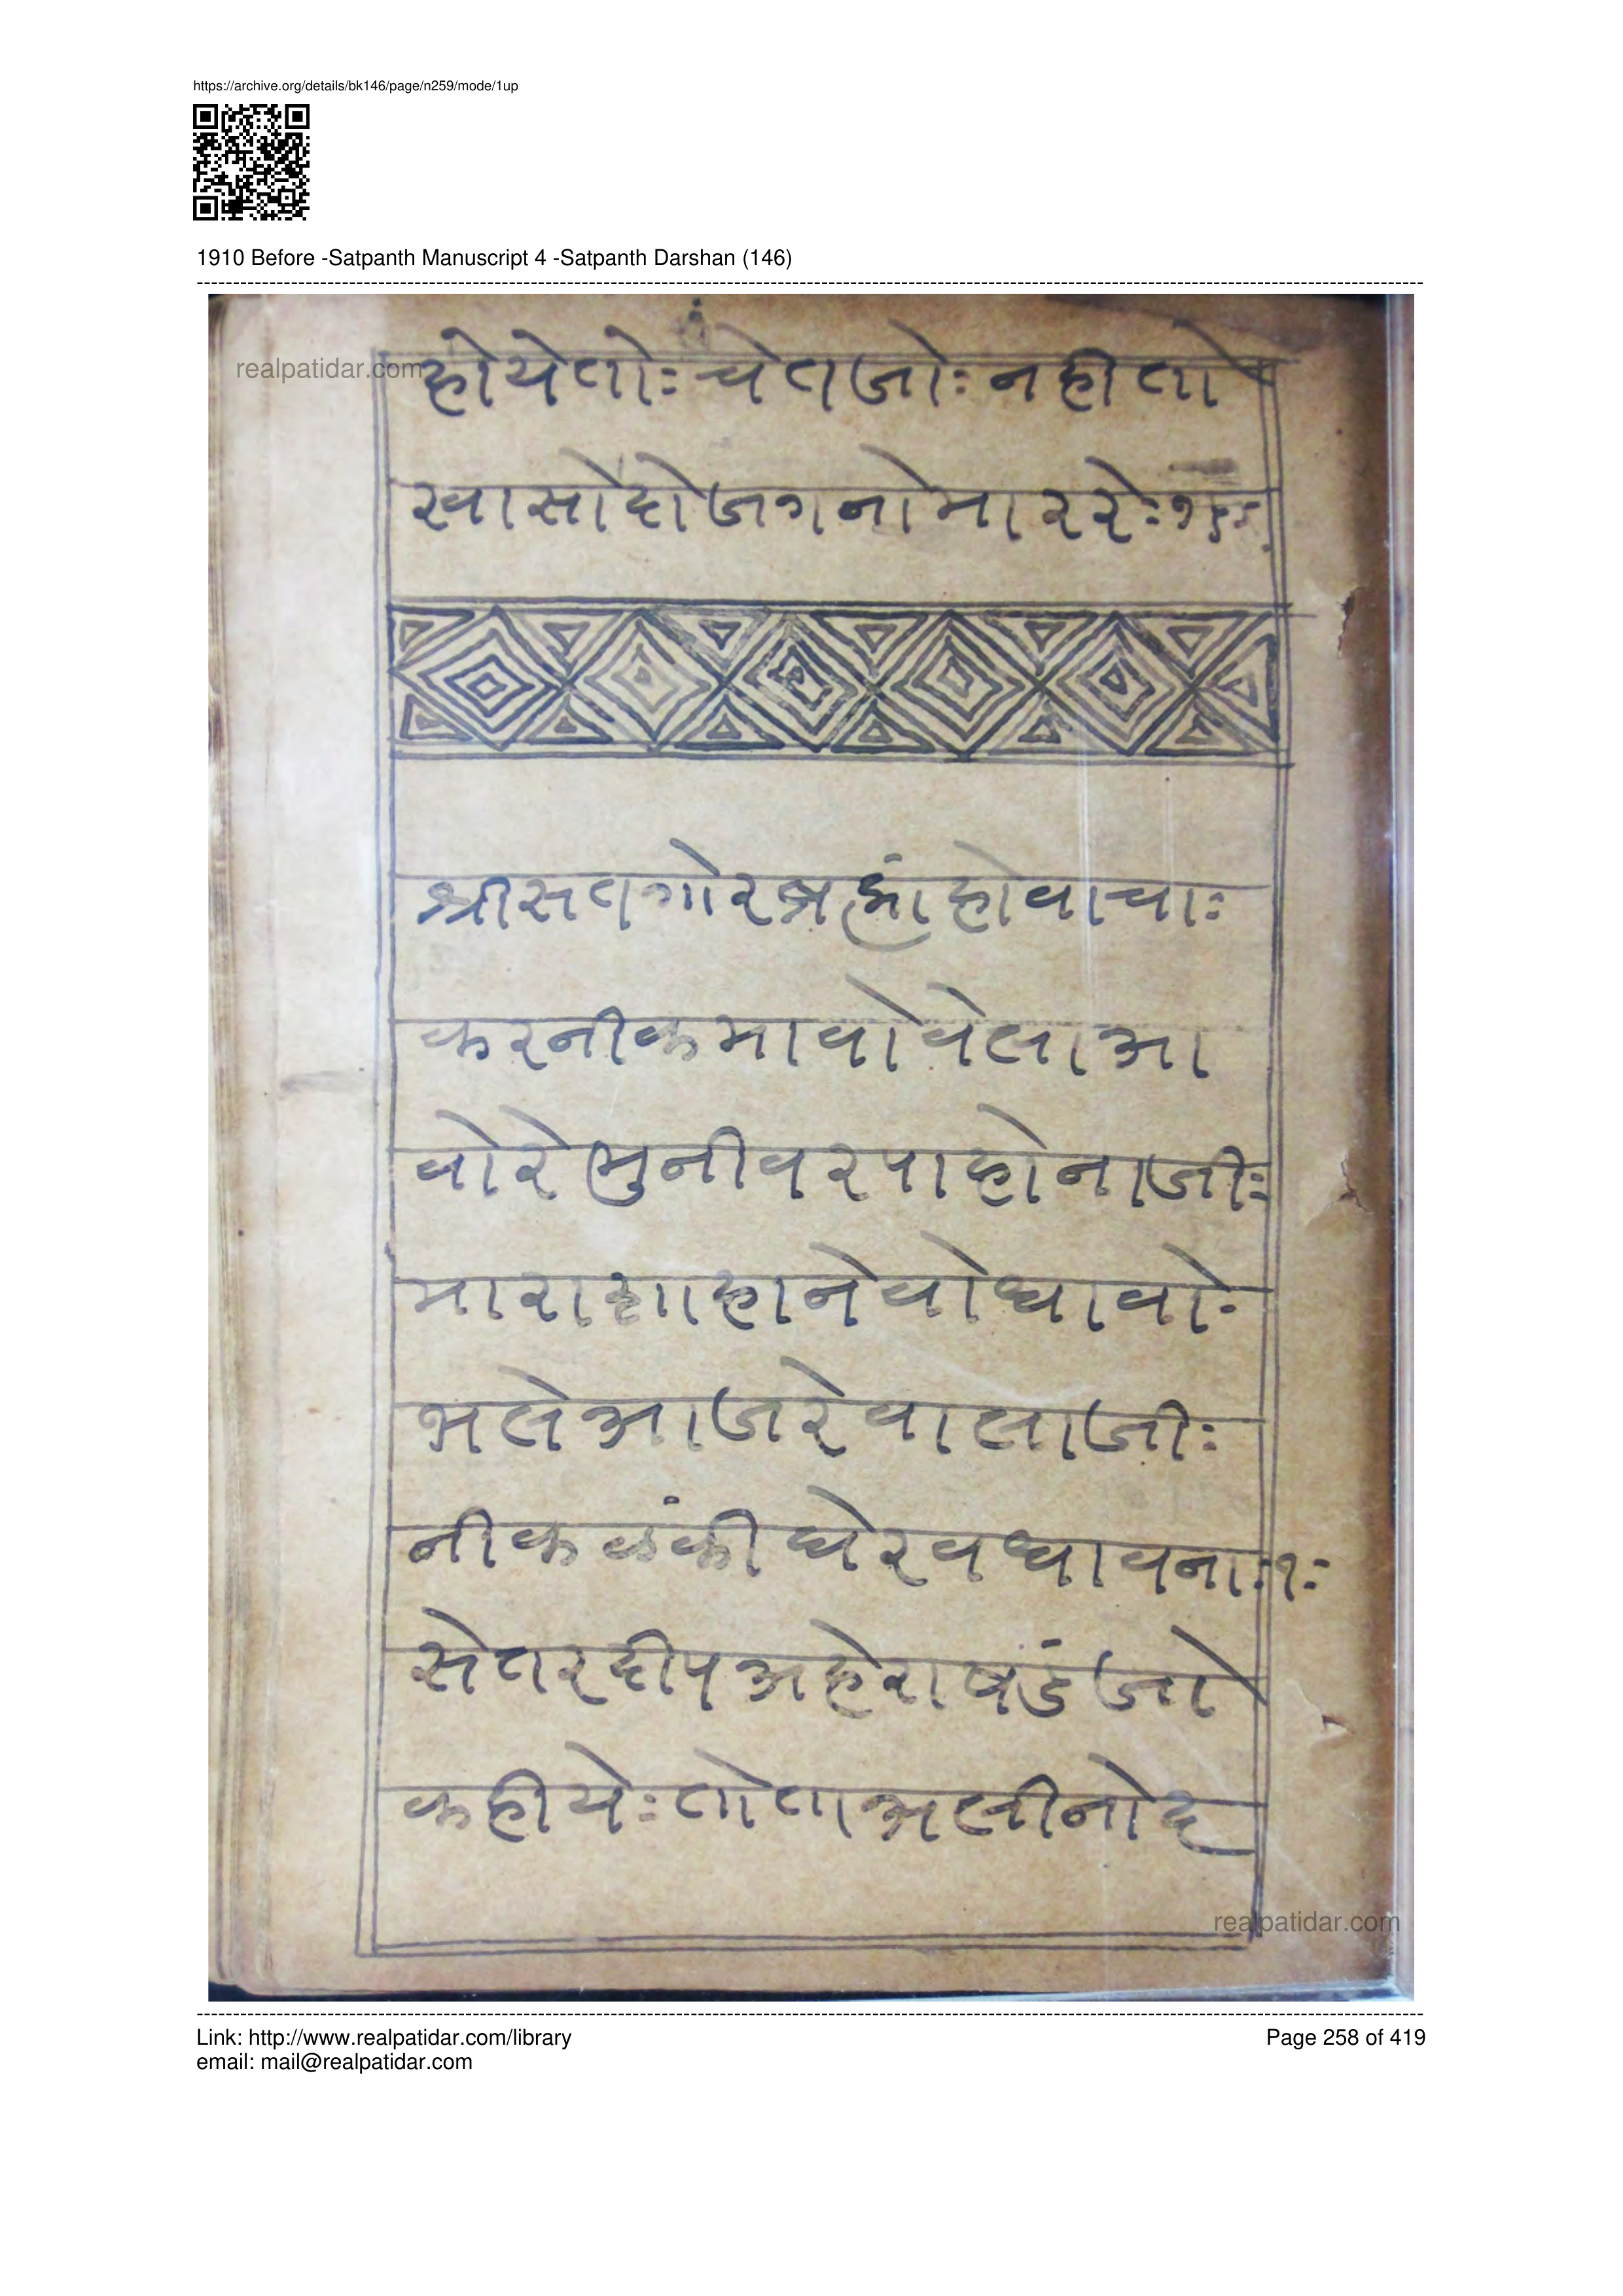 https://archive.org/details/bk146/page/n259/mode/1up
1910 Before -Satpanth Manuscript 4 -Satpanth Darshan (146)
realpatidar.com
होयेतोः चेतजोः नहीतो
खासोदोजगनोमाररेः१५ः
श्रीसतगोरब्रह्मांहोवाचाः
करनीकमावोवेलाआ
वोरेमुनीवरपाहोनाजीः
माराशाहानेवोध्धावोः
भलेआजरेवालाजीः
नीकळंकीघेरवध्धावनाः१ः
सेतरदीपअहेराषडंजो
कहीयेः तोताभलीनोद
realpatidar.com
Link: http://www.realpatidar.com/library
Page 258 of 419
email: mail@realpatidar.com